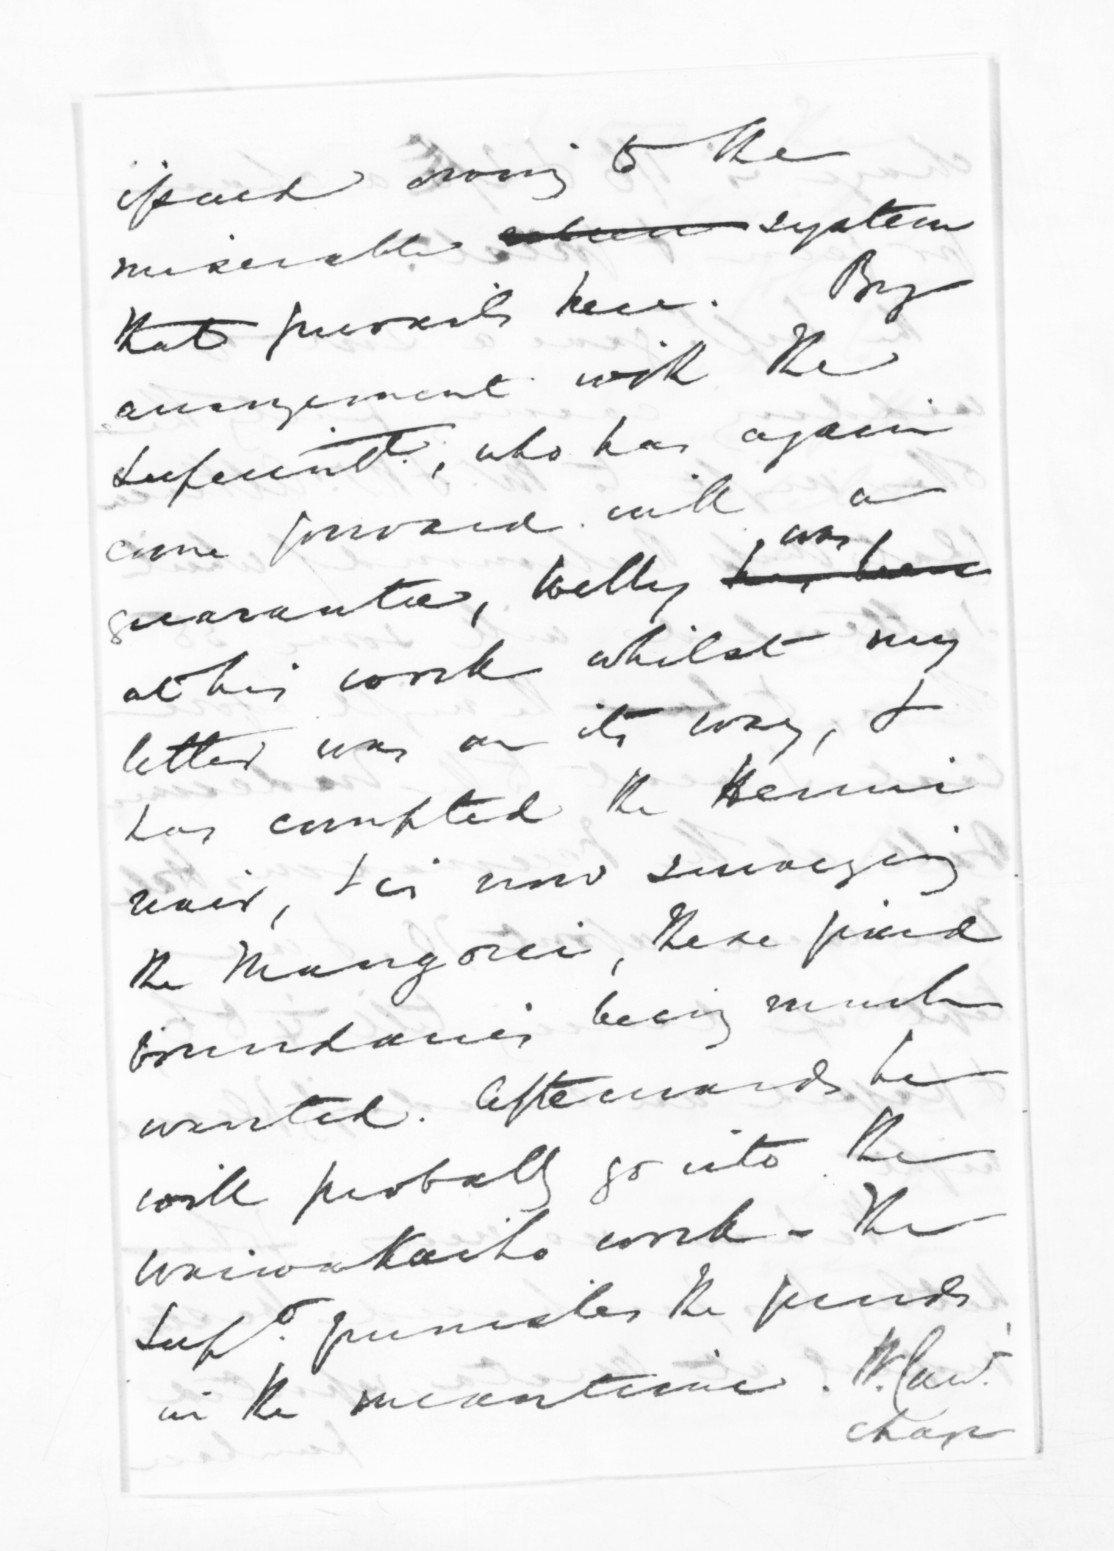 issued owing to the
miserable system
that prevails here. By
arrangement with the
Superintdt., who has again
come forward with a
guarantee, Welby was
at his work whilst my
letter was on its way, &
has completed the Henui
road, & is now surveying
the Mangorei, these
boundaries being much
wanted. Afterwards he
will probably go into the
Waiwakaiho work - The
Supt. furnishes the funds
in the meantime.